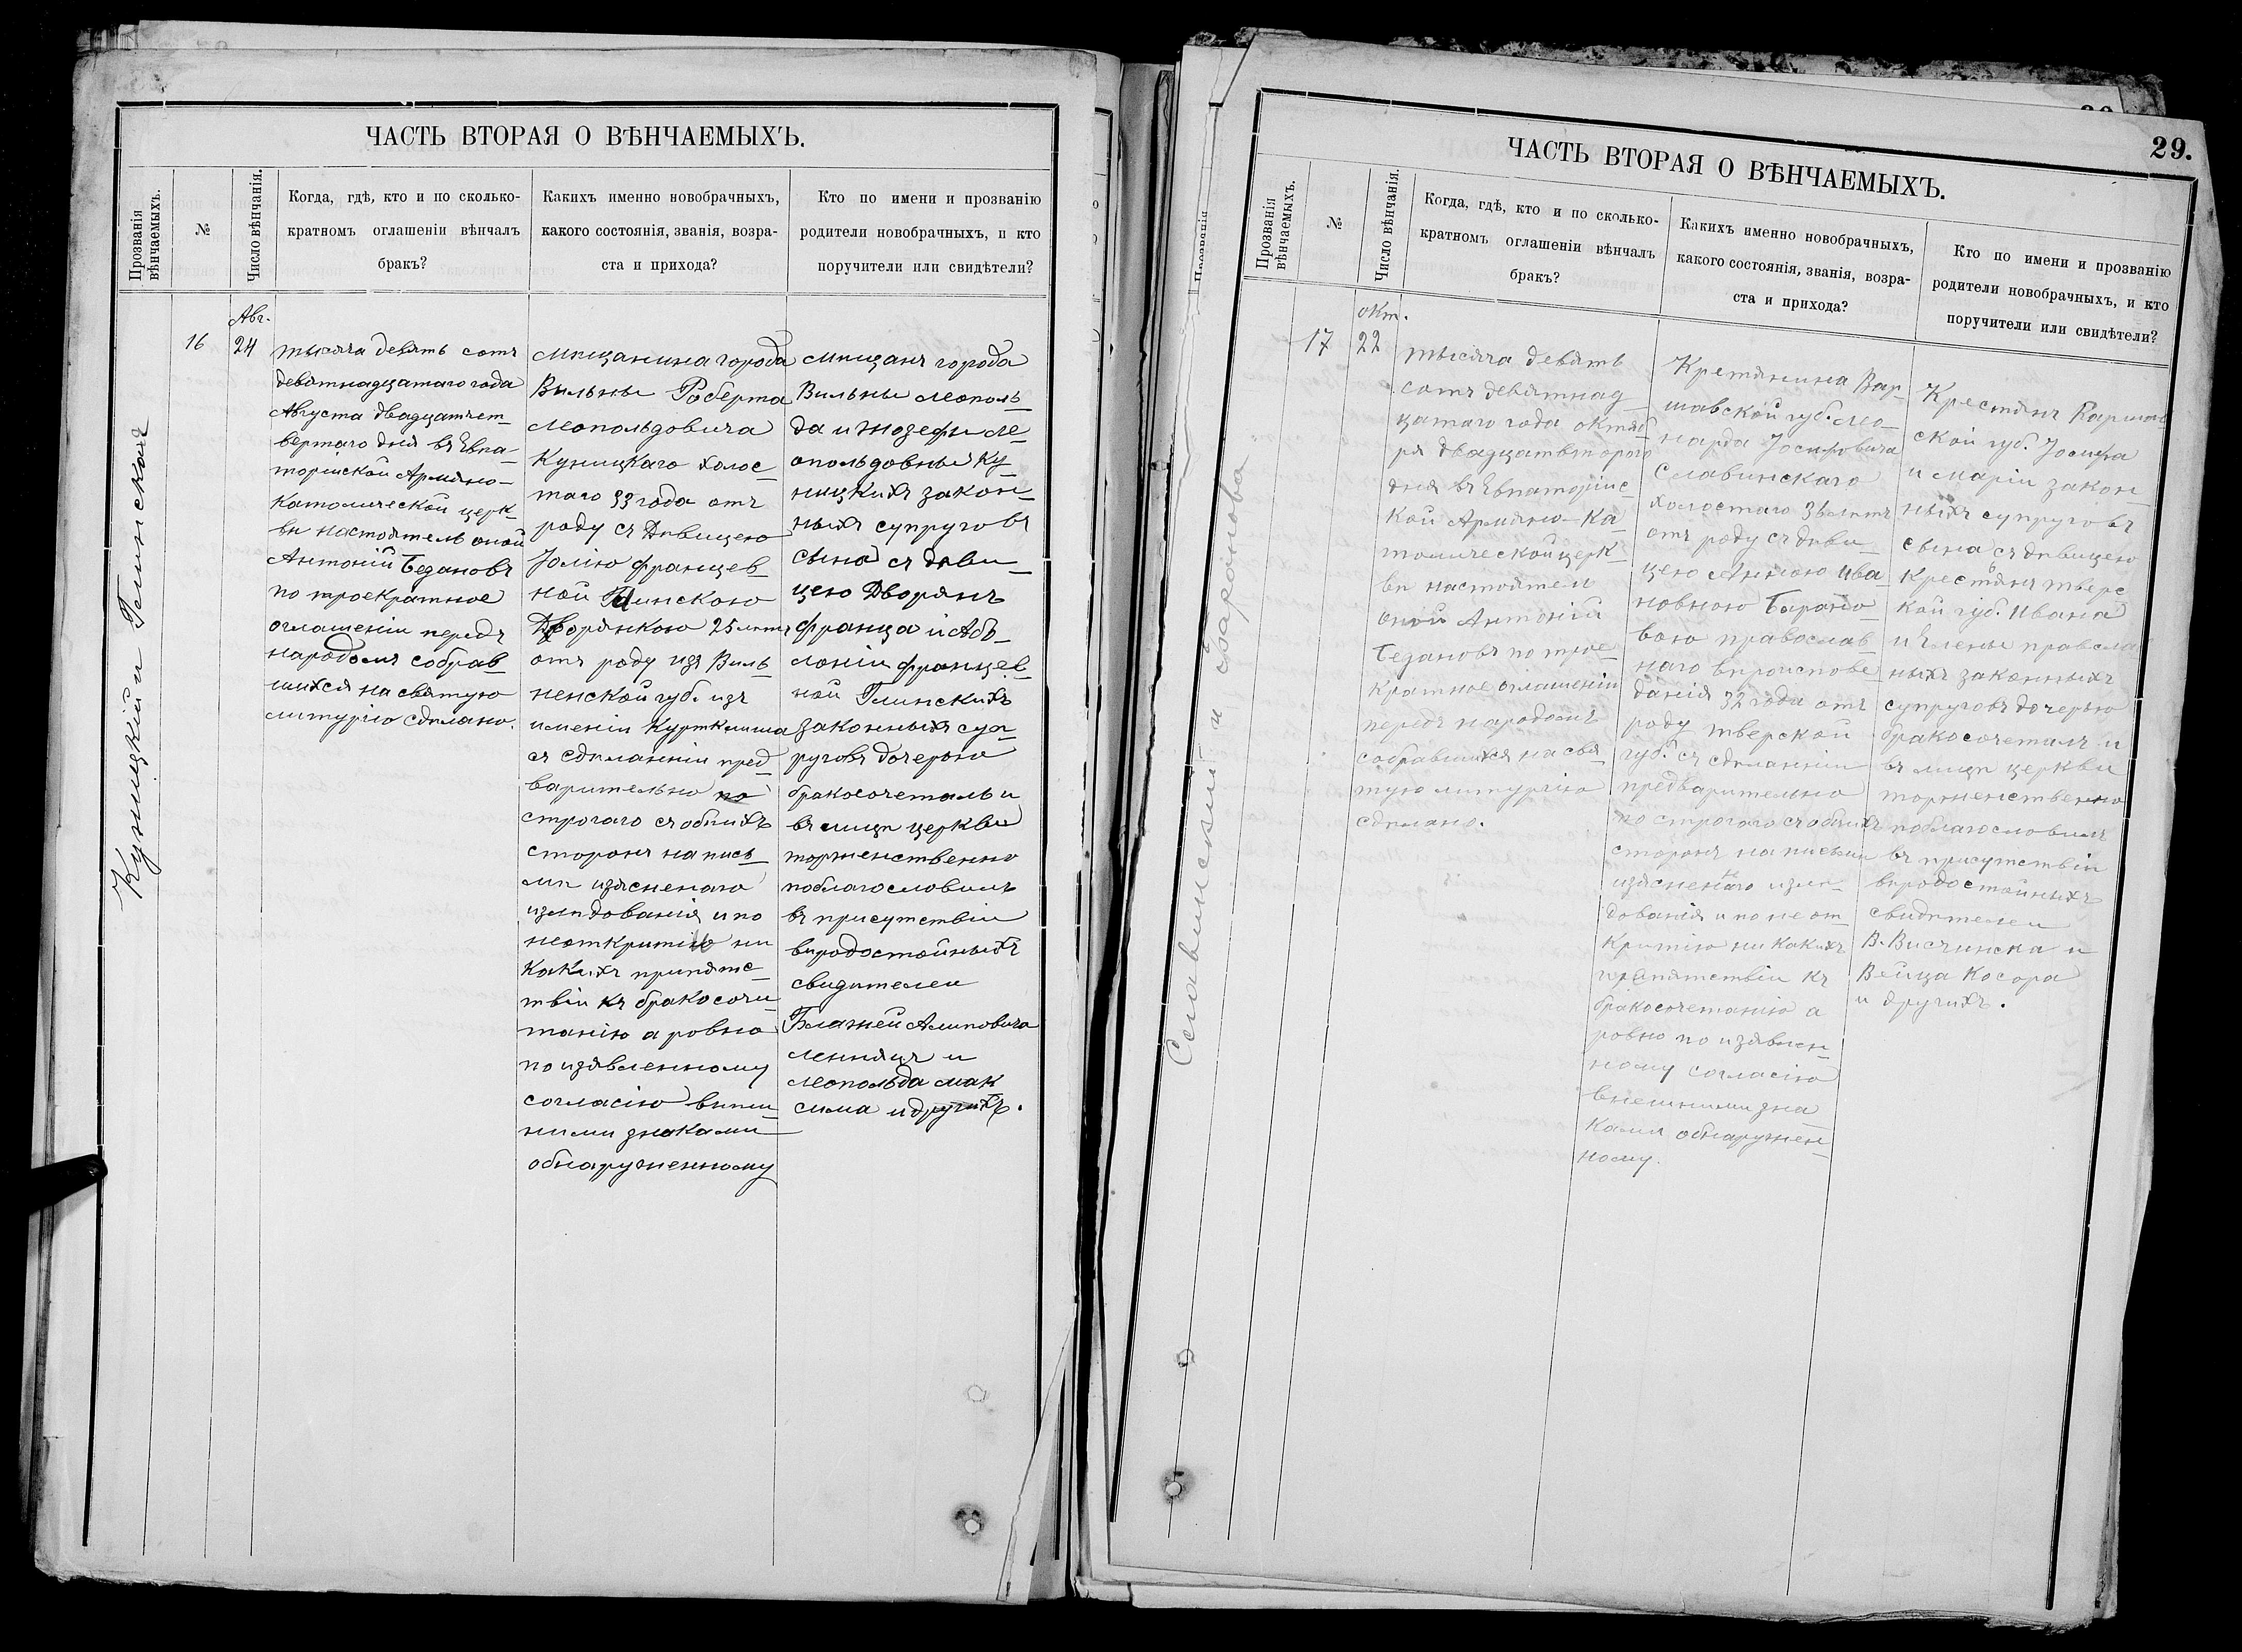 ЧАСТЬ ВТОРАЯ О ВѢНЧАЕМЫХЪ.
Прозванія
вѣнчаемыхъ.
№
Число вѣнчанія.
Когда, гдѣ, кто и по сколько-
кратномъ оглашеніи вѣнчалъ
бракъ?
Какихъ именно новобрачныхъ,
какого состоянія, званія, возра-
ста и прихода?
Кто по имени и прозванію
родители новобрачныхъ, и кто
поручители или свидѣтели?
Куницкій и Глинская
16
Авг.
24
тысяча девять сотъ
девятнадцатаго года
Августа двадцатчет-
вертаго дня въ Евпа-
торійской Армяно-
католической церк-
ви настоятель оной
Антоній Бедановъ
по троекратное
оглашеніи передъ
народомъ собрав-
шихся на святую
литургію сдѣлано.
мѣщанина города
Вильны Роберта
Леопольдовича
Куницкаго холос-
таго 33 года отъ
роду съ дѣвицею
Юлію Францев-
ной Глинскою
Дворянкою 25 лѣтъ
отъ роду изъ Виль-
ненской губ. изъ
имѣніи Куртклиша
съ сдѣланніи пред-
варительно по
строгаго съ обѣихъ
сторонъ на пись-
мѣ изясненаго
изслѣдованія и по
неоткритію ни
какихъ припятс-
твіи къ бракосочи
танію а ровно
по изявленному
согласію внѣш-
ними знаками
обнаруженному
мѣщанъ города
Вильны Леополь-
да и Жозефы Ле-
опольдовны Ку-
ницкихъ закон-
ныхъ супруговъ
сына съ дѣви-
цею Дворянъ
Франца и Аб-
лоніи Францев-
ной Глинскихъ
законныхъ суп-
руговъ дочерью
бракосочеталъ и
въ лицѣ церкви
торжественно
поблагословилъ
въ присутствіи
вѣродостойныхъ
свидѣтелеи
Блажей Алиповича
Леннецъ и
Леопольда Мак
сима и другихъ.
29.
ЧАСТЬ ВТОРАЯ О ВѢНЧАЕМЫХЪ.
Прозванія
вѣнчаемыхъ.
№
Число вѣнчанія.
Когда, гдѣ, кто и по сколько-
кратномъ оглашеніи вѣнчалъ
бракъ?
Какихъ именно новобрачныхъ,
какого состоянія, званія, возра-
ста и прихода?
Кто по имени и прозванію
родители новобрачныхъ, и кто
поручители или свидѣтели?
Славинскій и Баранова
17
окт.
22
тысяча девять
сотъ девятнад-
цатаго года октяб-
ря двадцатьвторого
дня въ Евпаторійс-
кой Армяно-Ка-
толической церк-
ви настоятель
оной Антоній
Бедановъ по трое-
кратное оглашеніи
передъ народомъ
собравшихся на свя-
тую литургію
сдѣлано.
Кретянина Вар-
шавской губ. Лео-
нарда Іосифовича
Славинскаго
холостаго 36 лѣтъ
отъ роду съ дѣви-
цею Анною Ива-
новною Барано-
вою православ-
наго вѣроиспове-
данія 32 года отъ
роду Тверской
губ. съ сдѣланніи
предварительно
по строгаго съ обѣихъ
сторонъ на письмѣ
изясненнаго изслѣ-
дованія и по не от-
критію ни какихъ
препятствіи къ
бракосочетанію а
ровно по изявлен-
ному согласію
внешними зна-
ками обнаружен-
ному.
Крестянъ Варшав-
ской губ. Іосифа
и Маріи закон-
ныхъ супруговъ
сына съ дѣвицею
крестьянъ Тверс-
кой губ. Ивана
и Елены правсла-
ныхъ законныхъ
супруговъ дочерью
бракосочеталъ и
въ лицѣ церкви
торжественно
поблагословилъ
въ присутствіи
вѣродостойныхъ
свидѣтелеи
В. Висчинска и
Вейца Косора
и другихъ.